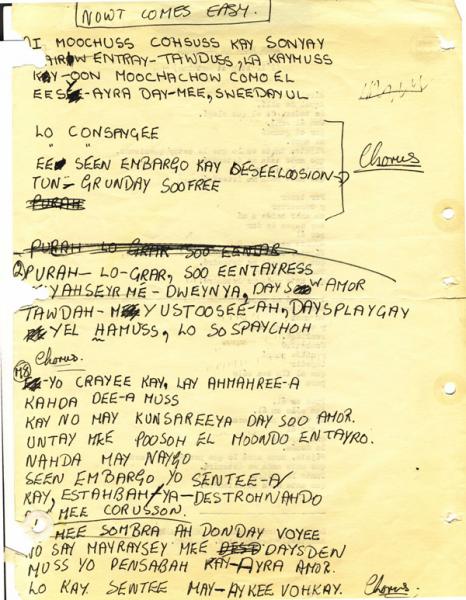 NOWT COMES EASY.
I MOOCHUSS COHSUSS KAY SONYAY
ENTRAY-TAWDUSS, LA KAYMUSS
KAY-OON MOOCHACHOW COMO EL
AYRA DAY-MEE, SWEEDAYUL
LO CONSAYGEE
" "
SEEN EMBARGO KAY DESEELOOSION
TUN- GRUNDAY SOOFREE
Chorus
PURAH LO GRAR SOO
② PURAH- LO-GRAR, SOO EENTAYRESS
YAHSEYR ME- DWEYNYA, DAY AMOR
TAWDAH- YUSTOOSEE-AH, DAYSPLAYGAY
YEL HAMUSS, LO SOSPAYCHOH
Chorus.
M8
YO CRAYEE KAY, LAY AHMAHREE-A
KAHDA DEE-A MUSS
KAY NO MAY KUNSAREEYA DAY SOO AMOR.
UNTAY MEE POOSOH EL MOONDO ENTAYRO.
NAHDA MAY NAYGO
SEEN EMBARGO YO SENTEE-A/
KAY, ESTAHBAH/YA-DESTROHNAHDO
MEE CORUSSON.
MEE SOMBRA AH DONDAY VOYEE
SAY MAYRAYSEY MEE DAYSDEN
MUSS YO PENSABAH KAY-AYRA AMOR.
LO KAY SENTEE MAY-AYKEE VOHKAY. Chorus.